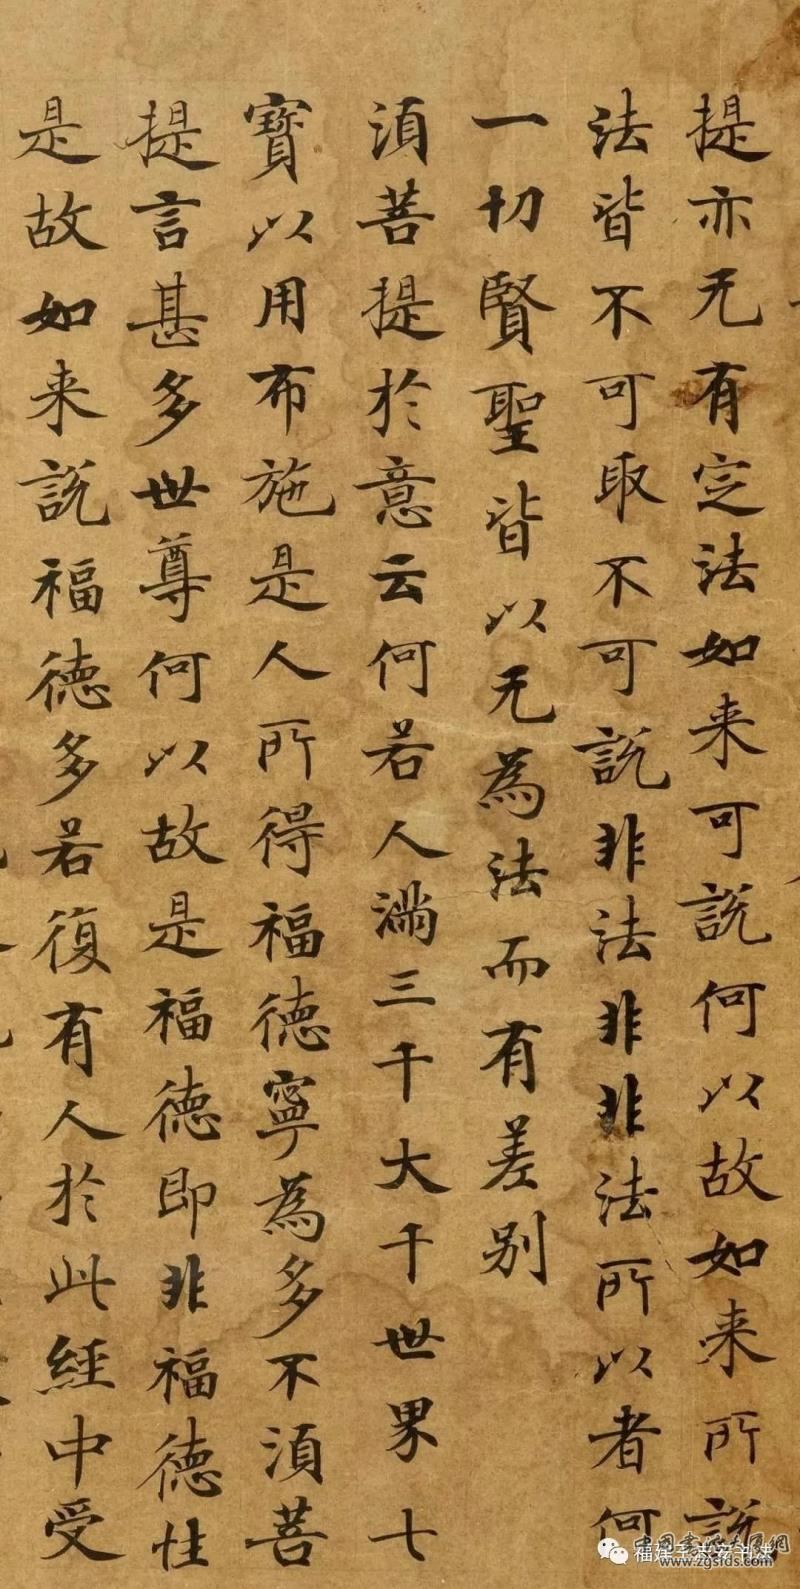 提亦无有定法如来可說何以故如来所說
法皆不可取不可說非法非非法所以者何
一切賢聖皆以无為法而有差别
須菩提於意云何若人滿三千大千世界七
寶以用布施是人所得福德寧為多不須菩
提言甚多世尊何以故是福德即非福德性
是故如来說福德多若復有人於此經中受
www.zgsfds.com